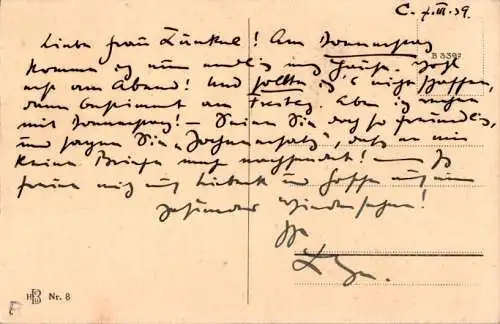 C. 7.III.39.
B 3392
Liebe Frau Künkel! Am Donnerstag
komme ich nun endlich ins Haus,
erst am Abend! Und sollte ich's nicht schaffen,
dann bestimmt am Freitag. Aber ich rechne
mit Donnerstag! — Seien Sie doch so freundlich,
und sagen Sie daß er mir
keine Briefe mehr nachsendet! — Ich
freue mich auf und hoffe auf ein
gesundes Wiedersehen!
Ihr
HB Nr. 8